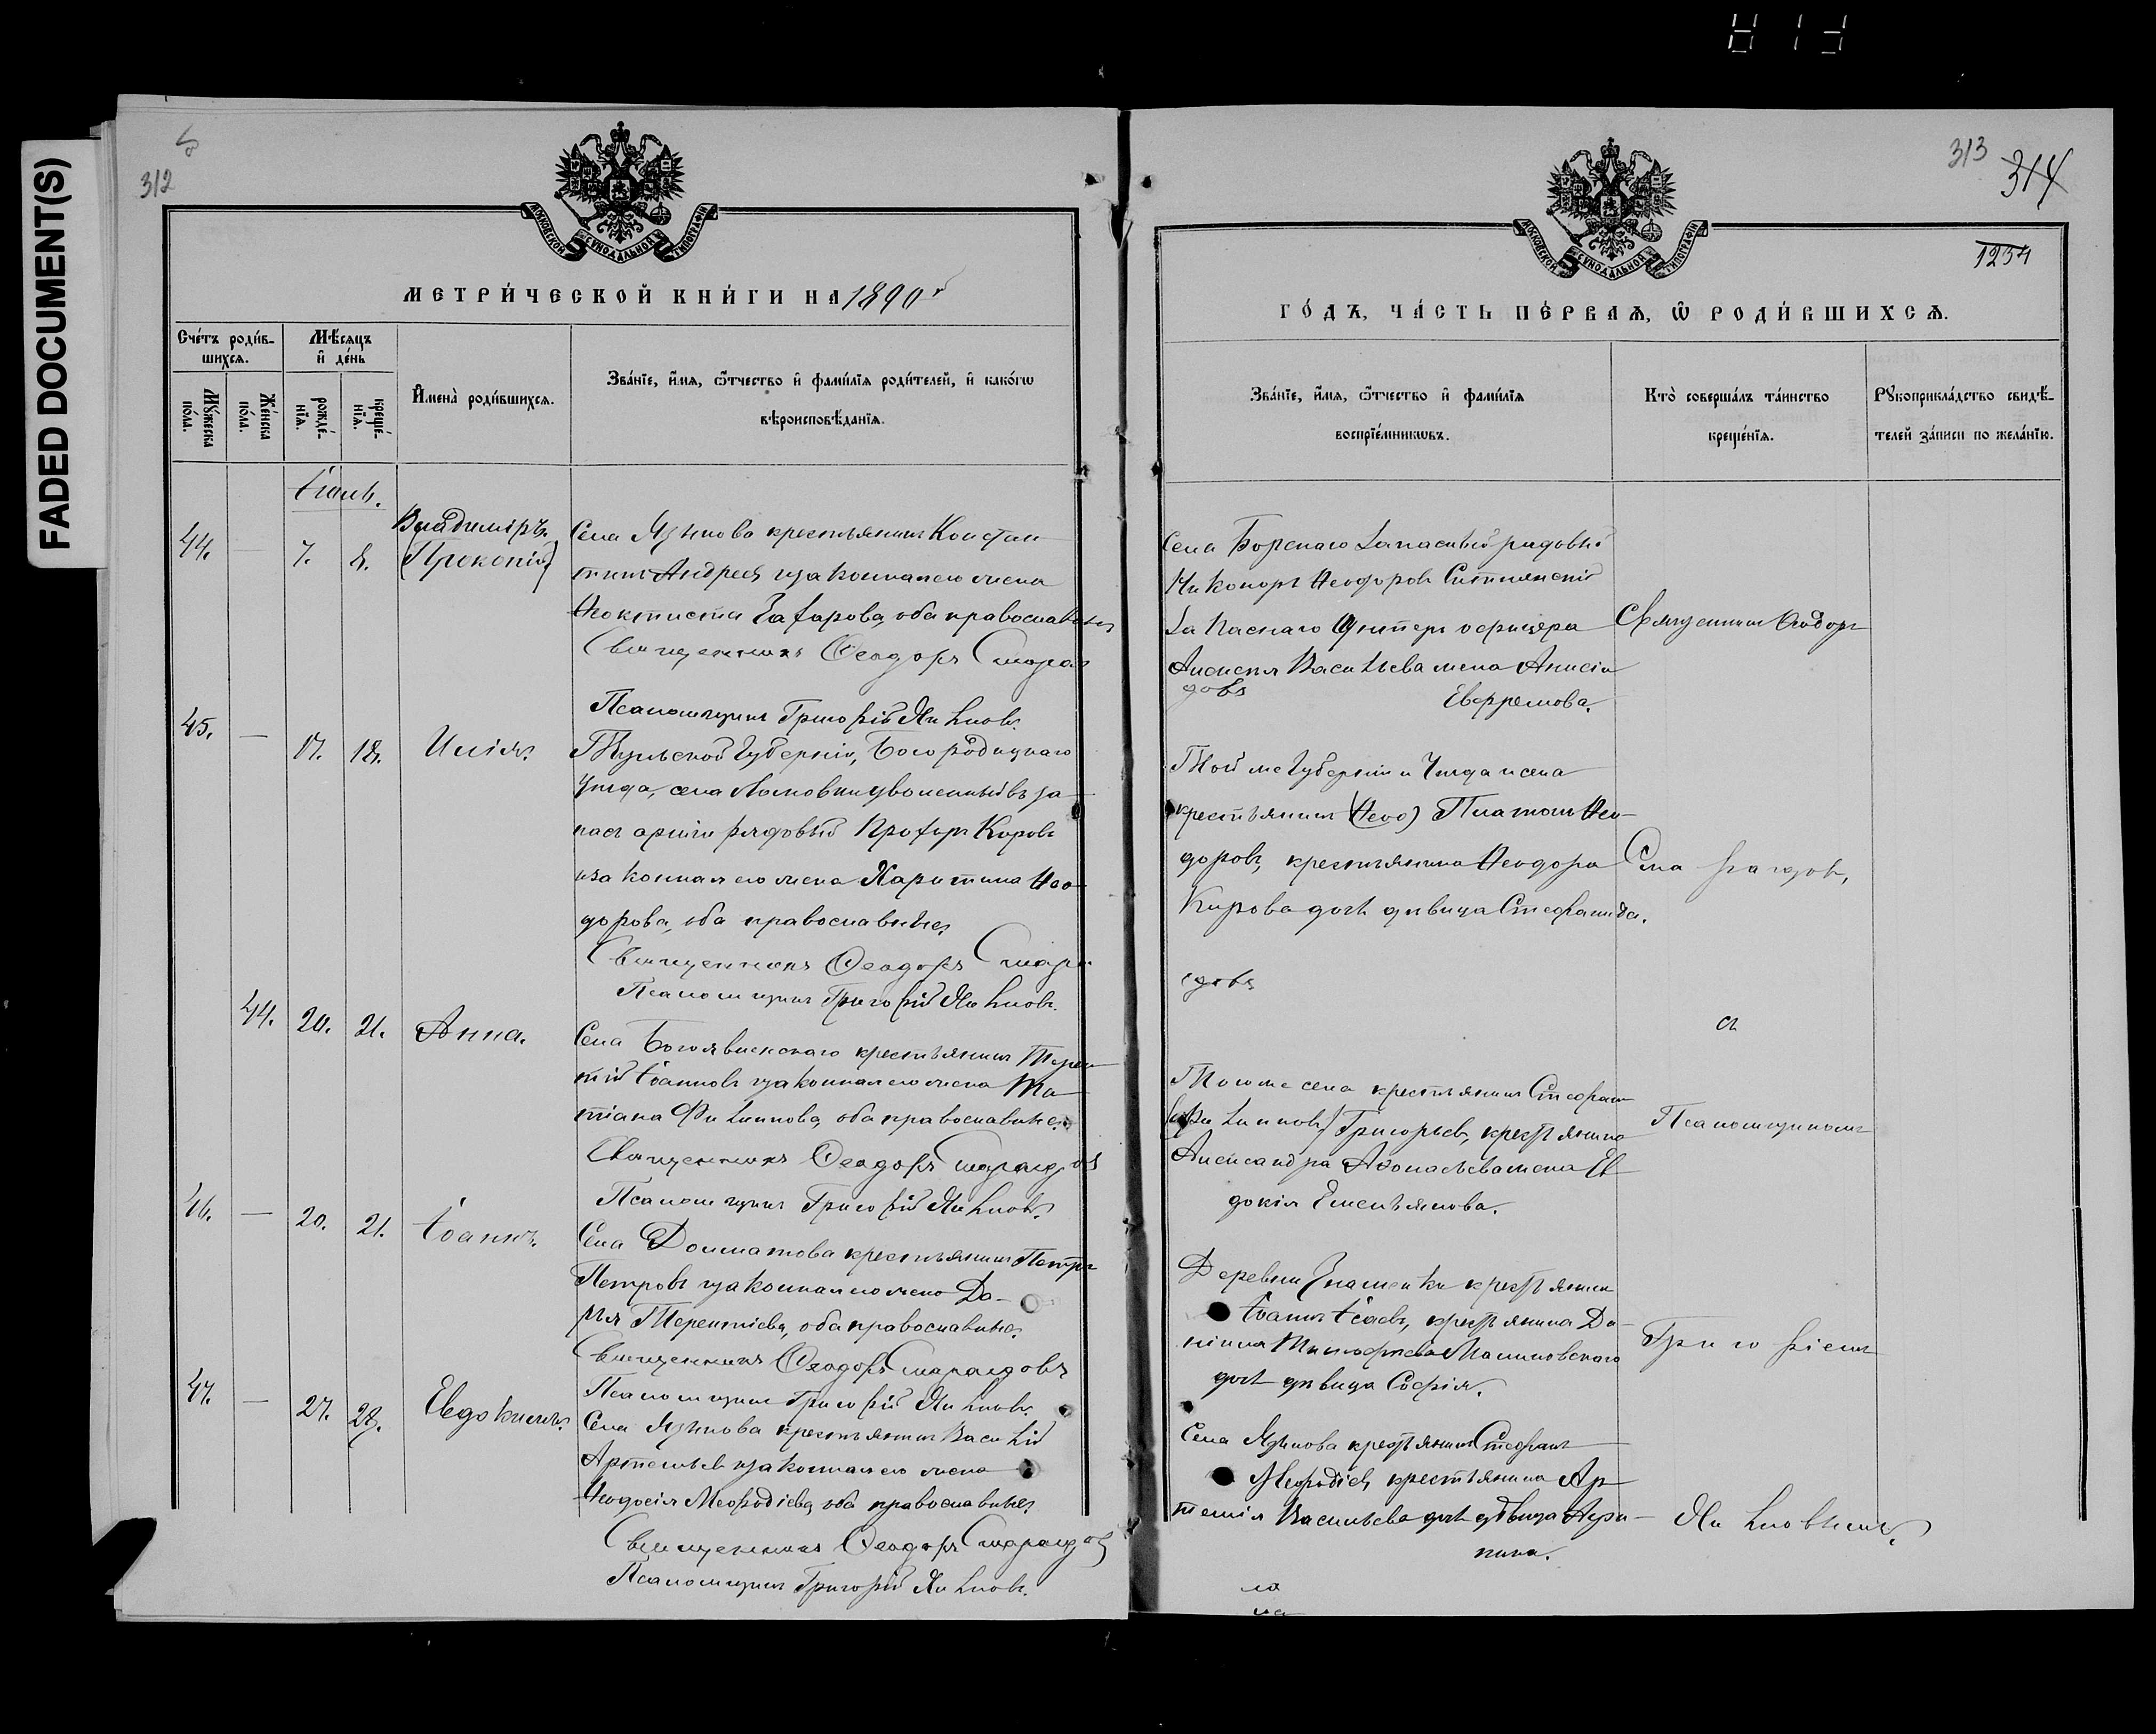 FADED DOCUMENT(S)
312
МОСКОВСКОЙ СУНОДАЛЬНОЙ ТИПОГРАФІИ
МЕТРИ́ЧЕСКОЙ КНИ́ГИ НА 1890
Сче́тъ роди́в-
шихсѧ.
Мѣ́сѧцъ
и҆ де́нь
Му́жеска
по́ла.
Же́нска
по́ла.
рожде́-
нїѧ.
креще́-
нїѧ.
И҆мена̀ роди́вшихсѧ.
Зва́нїе, и҆́мѧ, ѻ҆́тчество и҆ фами́лїѧ роди́телей, и҆ како́гѡ
вѣроисповѣ́данїѧ.
Іюль.
44. — 7. 8. Владиміръ.
(Прокопій)
Села Язикова крестьянинъ Констан-
тинъ Андреевъ и законная его жена
Ѳеоктиста Захарова, оба православные
Священникъ Ѳеодоръ Смараг
Псаломщикъ Григорій
45. — 17. 18. Илія.
Тульской Губерніи, Богородицкаго
Уѣзда, села уволенный въ за-
пасъ арміи рядовый Прохоръ Кировъ
и законная его жена Харитина Ѳео-
дорова, оба православные.
Священникъ Ѳеодоръ Смара
Псаломщикъ Григорій
44. 20. 21. Анна.
Села Богоявленскаго крестьянинъ Терен-
тій Іоанновъ и законная его жена Та-
тіана Филиппова, оба православные.
Священникъ Ѳеодоръ Смарагдовъ
Псаломщикъ Григорій
46. — 20. 21. Іоаннъ.
Села Долматова крестьянинъ Петръ
Петровъ и законная его жена Да-
рья Терентіева, оба православные.
Священникъ Ѳеодоръ Смарагдовъ
Псаломщикъ Григорій
47. — 27. 28. Евдокимъ.
Села Язикова крестьянинъ Василій
Артемьевъ и законная его жена
Ѳеодосія Меѳодіева, оба православные.
Священникъ Ѳеодоръ Смарагдовъ
Псаломщикъ Григорій
313
314
1254
МОСКОВСКОЙ СУНОДАЛЬНОЙ ТИПОГРАФІИ
ГО́ДЪ, ЧА́СТЬ ПЕ́РВАѦ, Ѡ҆ РОДИ́ВШИХСѦ.
Зва́нїе, и҆́мѧ, ѻ҆́тчество и҆ фами́лїѧ
воспрїе́мникѡвъ.
Кто̀ соверша́лъ та́инство
креще́нїѧ.
Рꙋкоприкла́дство свидѣ́-
телей за́писи по жела́нїю.
Села Борскаго Запасный рядовый
Никоноръ Ѳеодоровъ
Запаснаго Унтеръ офицера
Алексѣя Васильева жена Анисія
довъ
Евфремова.
Священникъ Ѳеодоръ
Той же Губерніи и Уѣзда и села
крестьянинъ (Ѳеод) Платонъ Ѳео-
доровъ, крестьянина Ѳеодора
Кирова дочь дѣвица Стефанида.
гдовъ
Смарагдовъ,
съ
Того же села крестьянинъ Стефанъ
(Филипповъ) Григорьевъ, крестьянина
Александра Аѳонасьева жена Ев-
докія Емельянова.
Псаломщикомъ
Деревни Знаменки крестьянинъ
Іоаннъ Ісаевъ, крестьянина Да-
ніила Тимофеева Малиновскаго
дочь дѣвица Софія.
Григоріемъ
Села Язикова крестьянинъ Стефанъ
Меѳодіевъ, крестьянина Ар-
темія Васильева дочь дѣвица Агри-
пина.